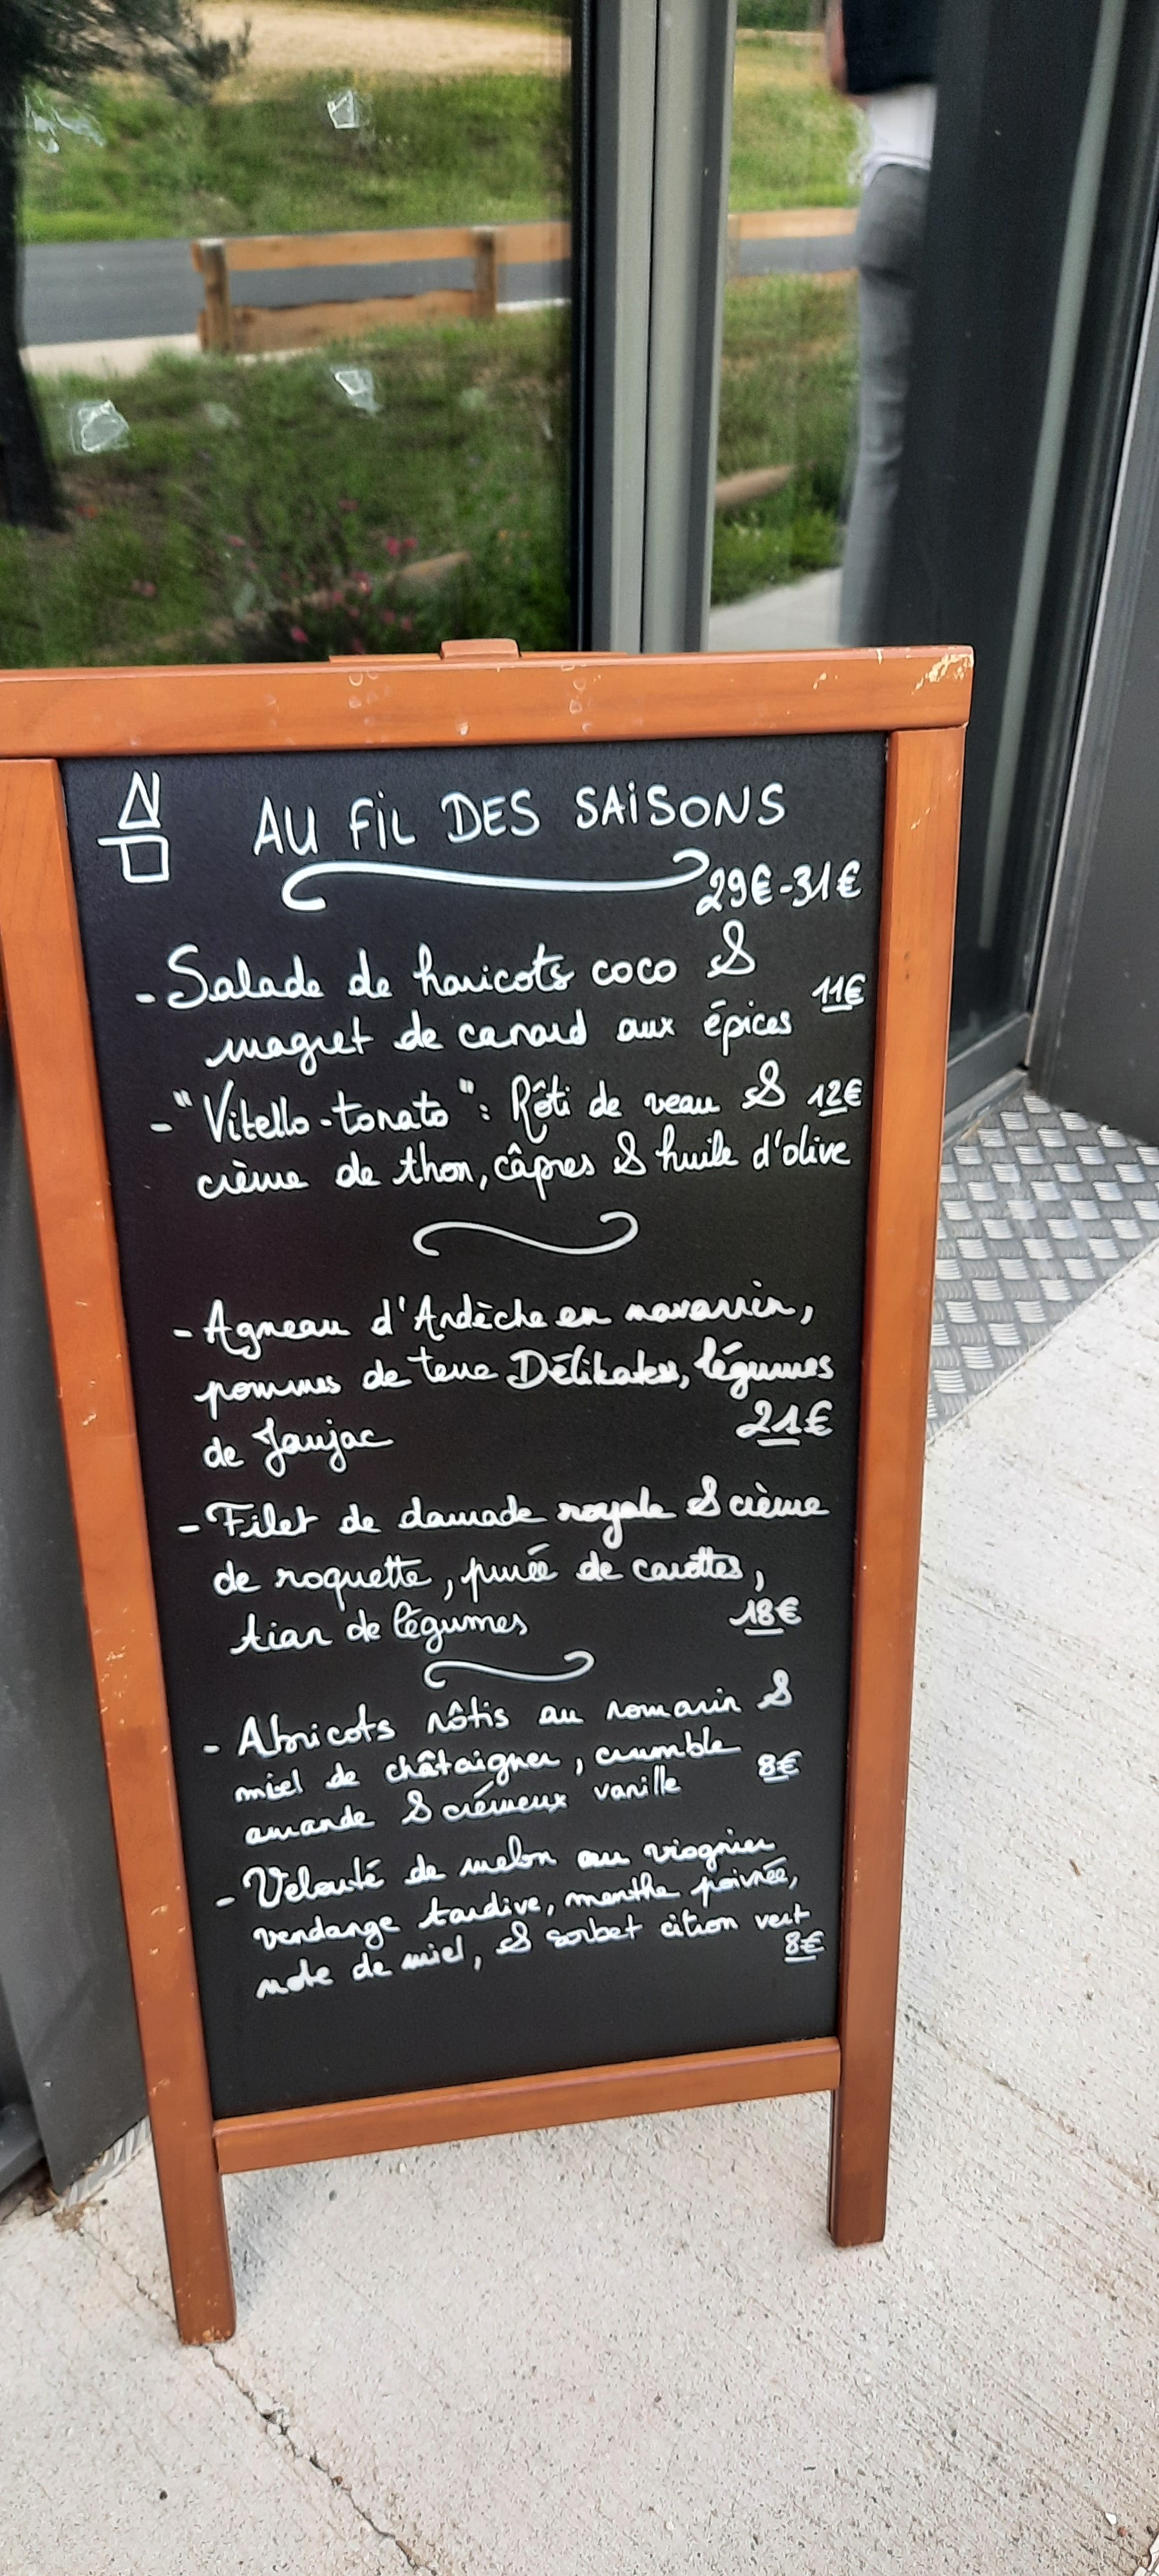 AU FIL DES SAISONS
29€-31€
- Salade de haricots coco &
magret de canard aux épices 11€
- "Vitello-tonato": Rôti de veau & 12€
crème de thon, câpres & huile d'olive
- Agneau d'Ardèche en navarrin,
pommes de terre Délikatess, légumes
de Jaujac 21€
- Filet de daurade royale & crème
de roquette, purée de carottes,
tian de légumes 18€
- Abricots rôtis au romarin &
miel de châtaigner, crumble
amande & crémeux vanille 8€
- Velouté de melon au viognier
vendange tardive, menthe poivrée,
note de miel, & sorbet citron vert
8€